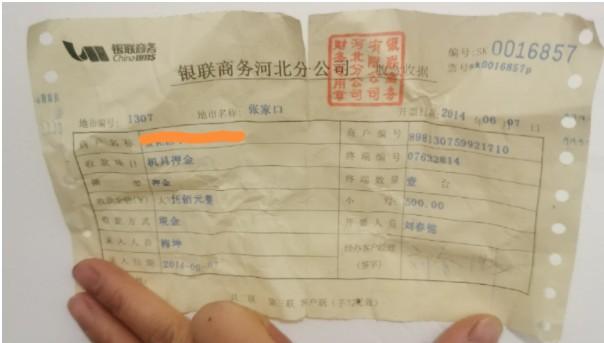 银联商务
Chinaums
编号:SK 0016857
票号sk0016857p
银联商务河北分公司 收据
银联商务
有限公司
河北分公司
财务专用章
地市编号: 1307 地市名称: 张家口 开票日期 2014 年 06 月 07 日
商户名称 商户编号 898130759921710
收款项目 机具押金 终端编号 07632814
类 型 押金 终端数量 壹 台
收款金额(¥) 人 伍佰元整 小 写 500.00
收款方式 现金 开票人员
人员 梅坤 经办客户经理
(签字)
日期 2014-06-07
共 联 第三联 客户联